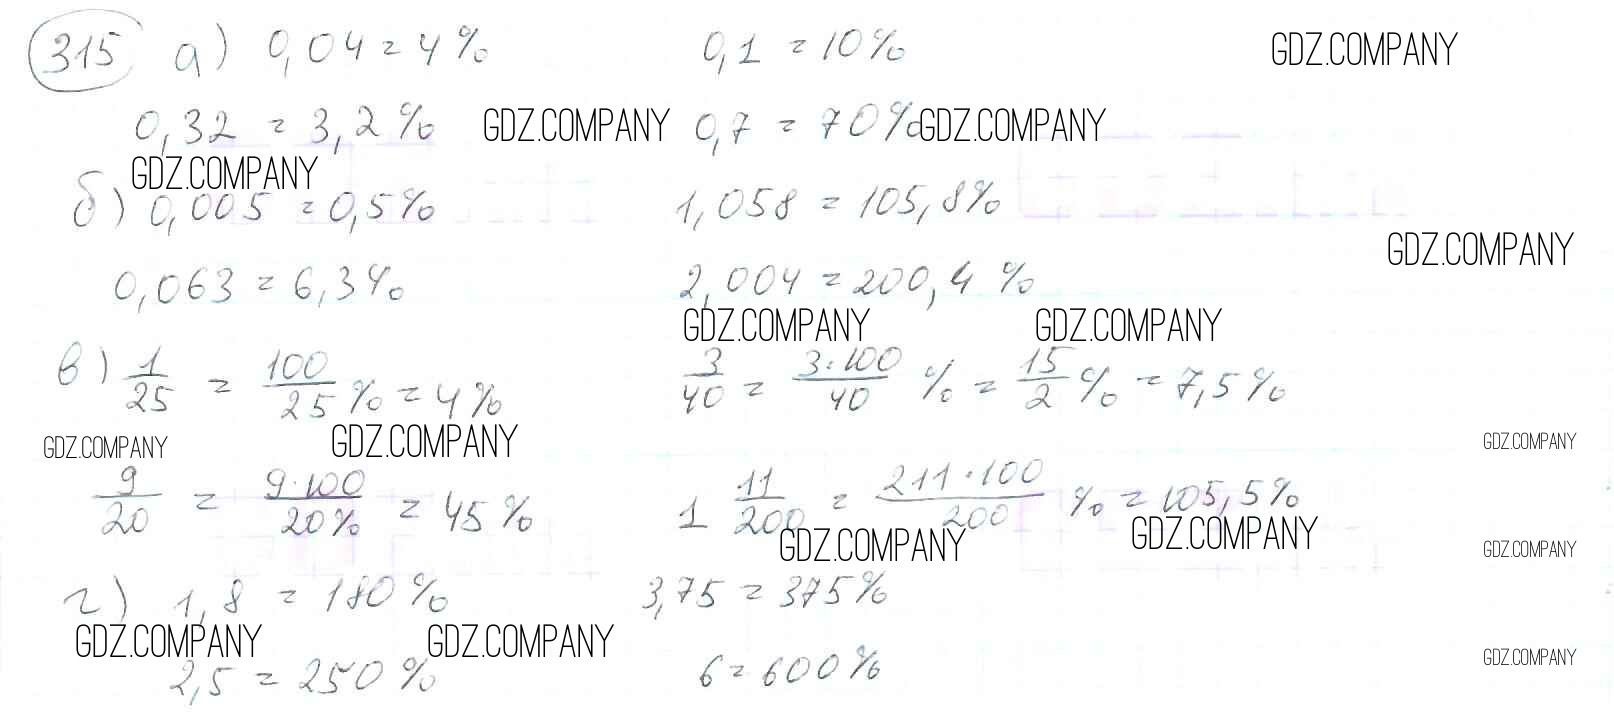 315 а) 0,04 = 4% 0,1 = 10% GDZ.COMPANY
0,32 = 3,2% GDZ.COMPANY 0,7 = 70% GDZ.COMPANY
GDZ.COMPANY
б) 0,005 = 0,5% 1,058 = 105,8%
GDZ.COMPANY
0,063 = 6,3% 2,004 = 200,4 %
GDZ.COMPANY GDZ.COMPANY
в) 1/25 = 100/25 % = 4% 3/40 = 3·100/40 % = 15/2 % = 7,5%
GDZ.COMPANY GDZ.COMPANY GDZ.COMPANY
9/20 = 9·100/20% = 45% 1 11/200 = 211·100/200 % = 105,5%
GDZ.COMPANY GDZ.COMPANY GDZ.COMPANY
г) 1,8 = 180% 3,75 = 375%
GDZ.COMPANY GDZ.COMPANY GDZ.COMPANY
2,5 = 250% 6 = 600%